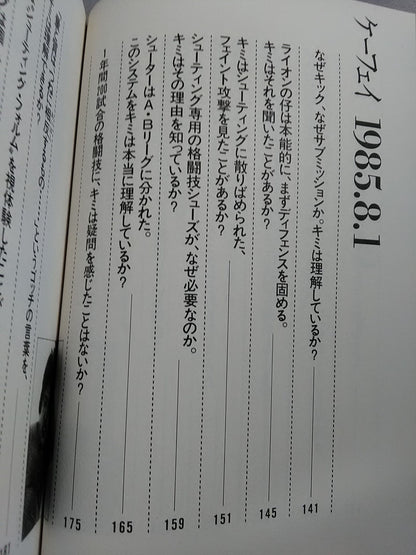 ケーフェイ 1985.8.1
なぜキック、なぜサブミッションか。キミは理解しているか? 141
ライオンの仔は本能的に、まずディフェンスを固める。
キミはそれを聞いたことがあるか? 145
キミはシューティングに散りばめられた、
フェイント攻撃を見たことがあるか? 151
シューティング専用の格闘技シューズが、なぜ必要なのか。
キミはその理由を知っているか? 159
シューターはA・Bリーグに分かれた。
このシステムをキミは本当に理解しているか? 165
1年間100試合の格闘技に、キミは疑問を感じたことはないか? 175
ゴッチの言葉を、